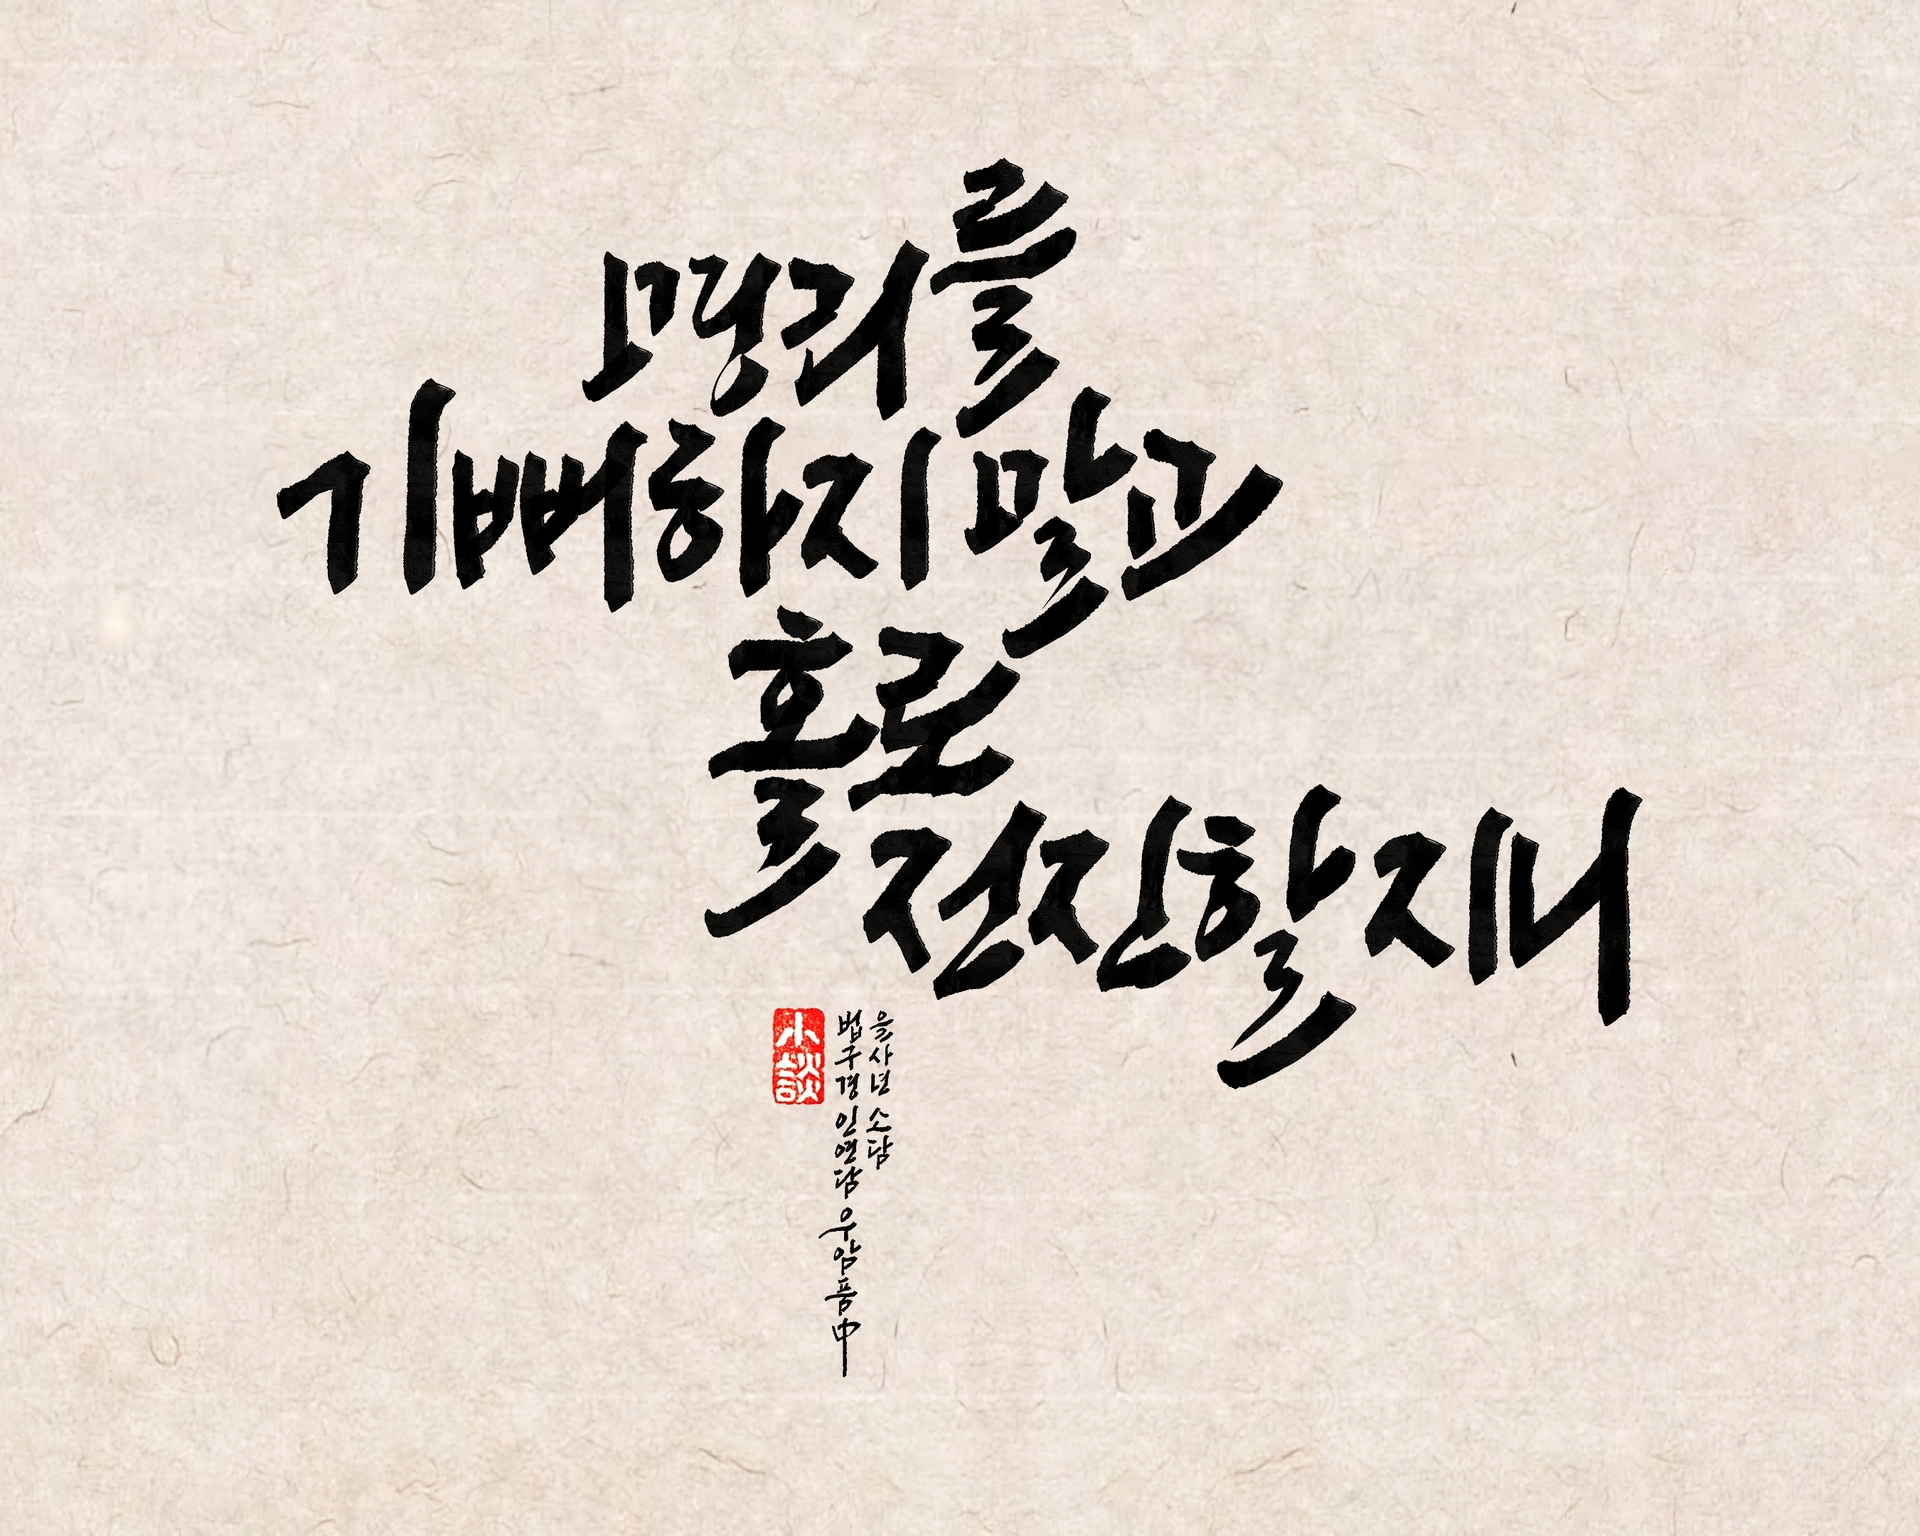 명리를
기뻐하지 말고
홀로
정진할지니
을사년 소담
법구경 인연담 우암품中
小談